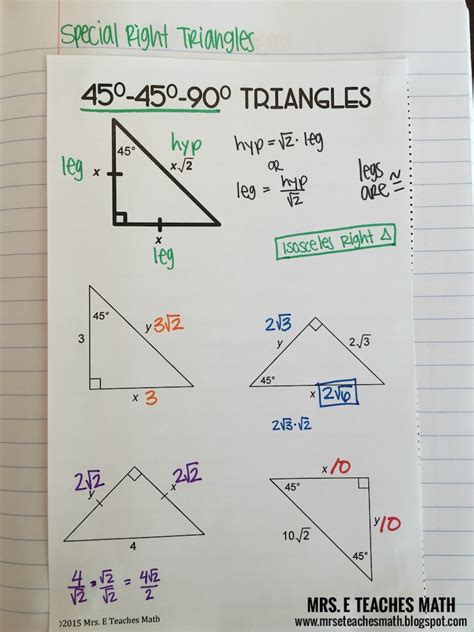 Special Right Triangles
45°-45°-90° TRIANGLES
45°
hyp
x√2
leg x
x
leg
hyp = √2 · leg
OR
leg = hyp/√2
legs are ≅
Isosceles Right △
45°
3
y 3√2
x 3
2√3
y
2√3
45°
x 2√6
2√3·√2
2√2
y
2√2
x
4
4/√2 = √2/√2 = 4√2/2
x 10
45°
y 10
10√2
45°
©2015 Mrs. E Teaches Math
MRS. E TEACHES MATH
www.mrseteachesmath.blogspot.com